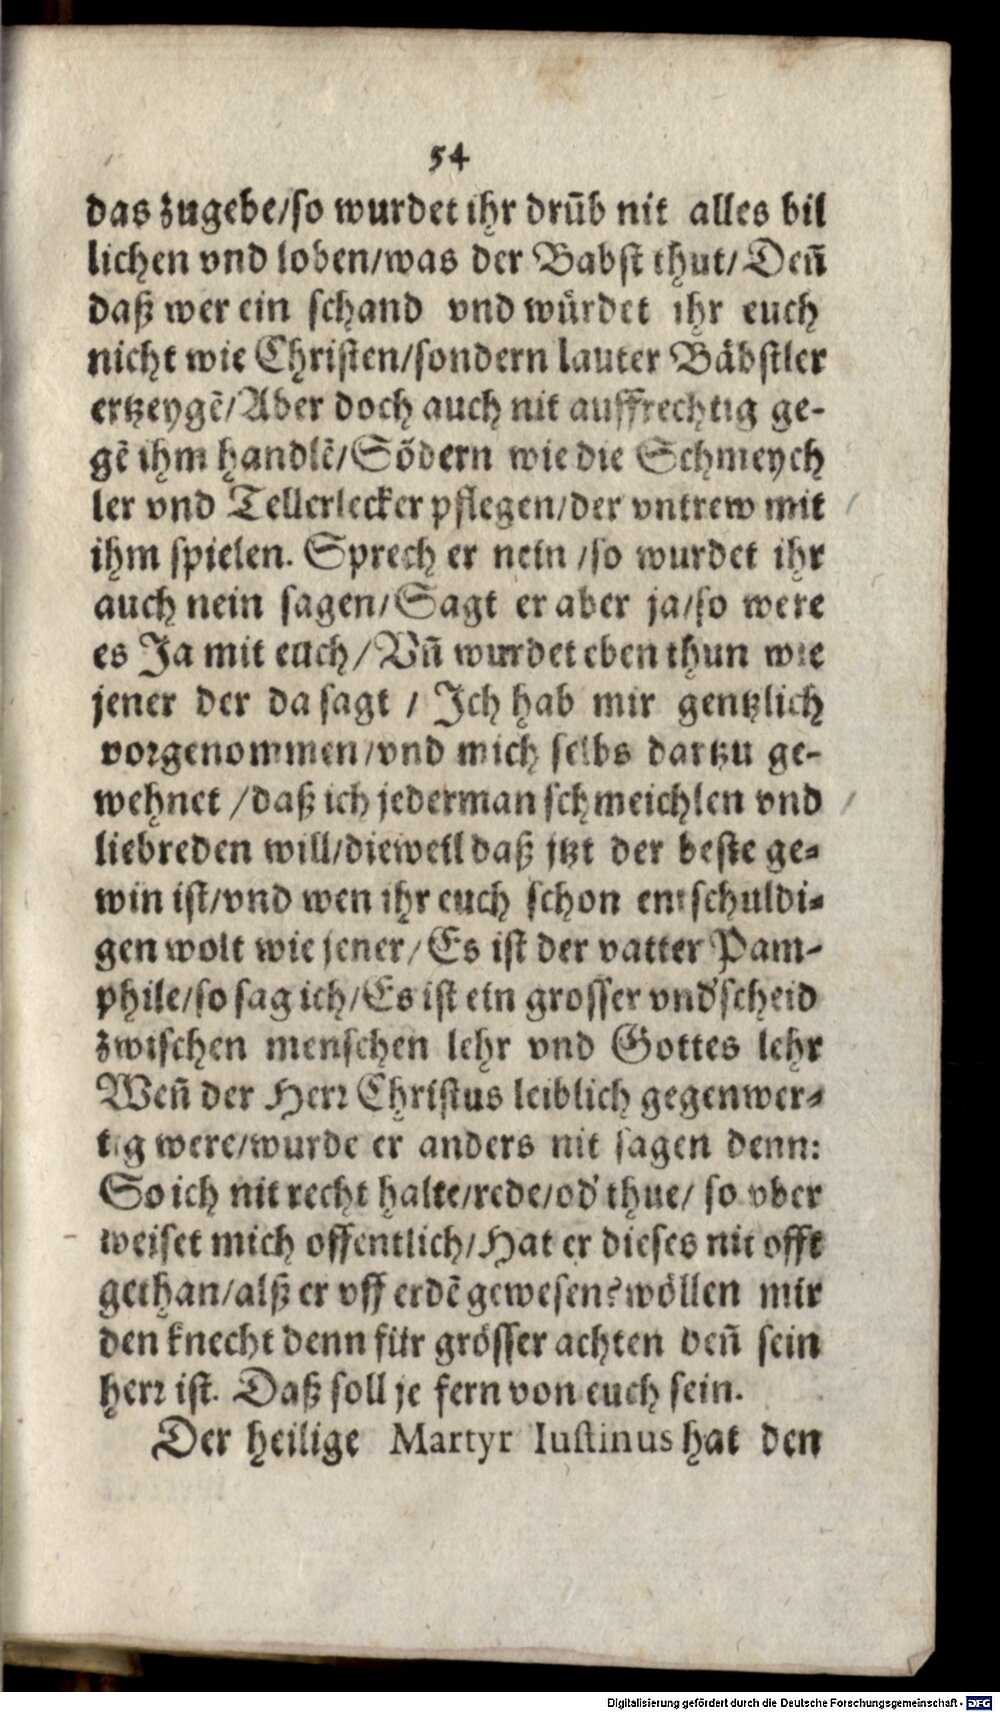 54
das zugebe/so wurdet ihr drūb nit alles bil
lichen vnd loben/was der Babst thut/Deñ
daß wer ein schand vnd würdet ihr euch
nicht wie Christen/sondern lauter Bäbstler
ertzeygē/Aber doch auch nit auffrechtig ge-
gē ihm handlē/Sōdern wie die Schmeych
ler vnd Tellerlecker pflegen/der vntrew mit
ihm spielen. Sprech er nein /so wurdet ihr
auch nein sagen/Sagt er aber ja/so were
es Ja mit euch/Vñ wurdet eben thun wie
jener der da sagt / Ich hab mir gentzlich
vorgenommen/vnd mich selbs dartzu ge-
wehnet /daß ich jederman schmeichlen vnd
liebreden will/dieweil daß jtzt der beste ge-
win ist/vnd wen ihr euch schon entschuldi-
gen wolt wie jener/Es ist der vatter Pam-
phile/so sag ich/Es ist ein grosser vnd'scheid
zwischen menschen lehr vnd Gottes lehr
Weñ der Herr Christus leiblich gegenwer-
tig were/wurde er anders nit sagen denn:
So ich nit recht halte/rede/od' thue/ so vber
weiset mich offentlich/Hat er dieses nit offt
gethan/alß er vff erdē gewesen? wöllen mir
den knecht denn für grösser achten deñ sein
herr ist. Daß soll je fern von euch sein.
Der heilige Martyr Iustinus hat den
Digitalisierung gefördert durch die Deutsche Forschungsgemeinschaft - DFG